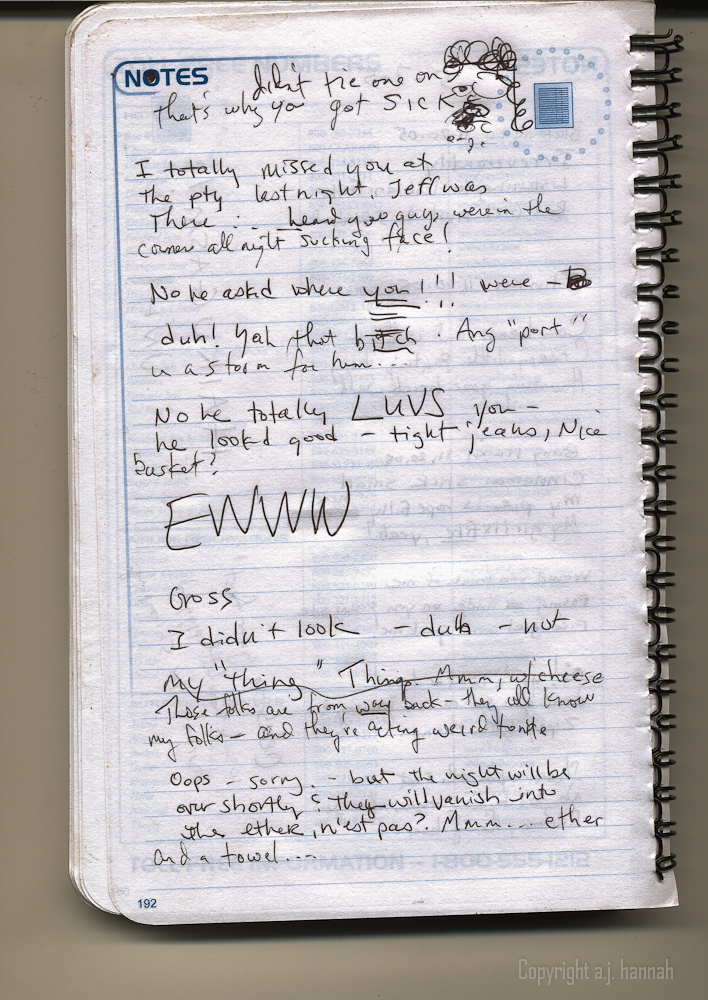 NOTES
didn't tie one on
that's why you got SICK
I totally missed you at
the pty last night. Jeff was
There :.. heard you guys were in the
corner all night sucking face!
No he asked where you!!! were –
duh! Yah that bitch. Any "port"
in a storm for him...
No he totally LUVS you –
he lookd good – tight jeans, Nice
basket?
EWWW
Gross
I didn't look – duh – not
my "thing" Things Mmm, w/cheese
Those folks are from way back – they all know
my folks – and they're acting weird tonite
Oops – sorry. – but the night will be
over shortly & they will vanish into
the ether, n'est pas? Mmm... ether
and a towel...
192
Copyright a.j. hannah